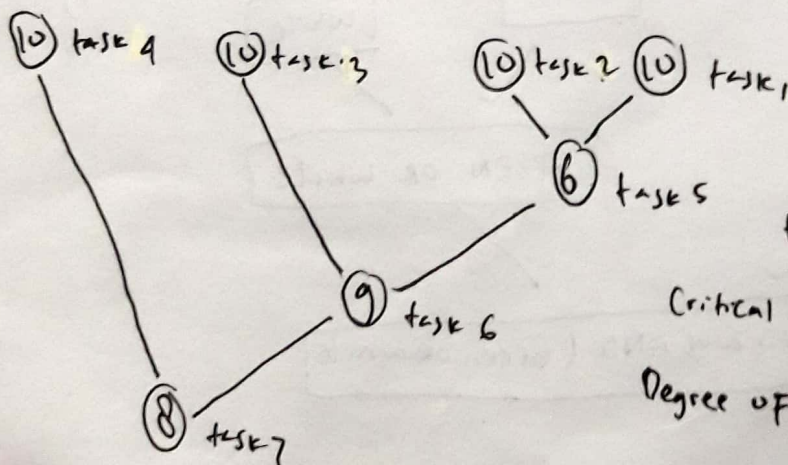 10 task 4
10 task.3
10 task 2
10 task 1
6 task 5
9 task 6
8 task 7
Critical
Degree of